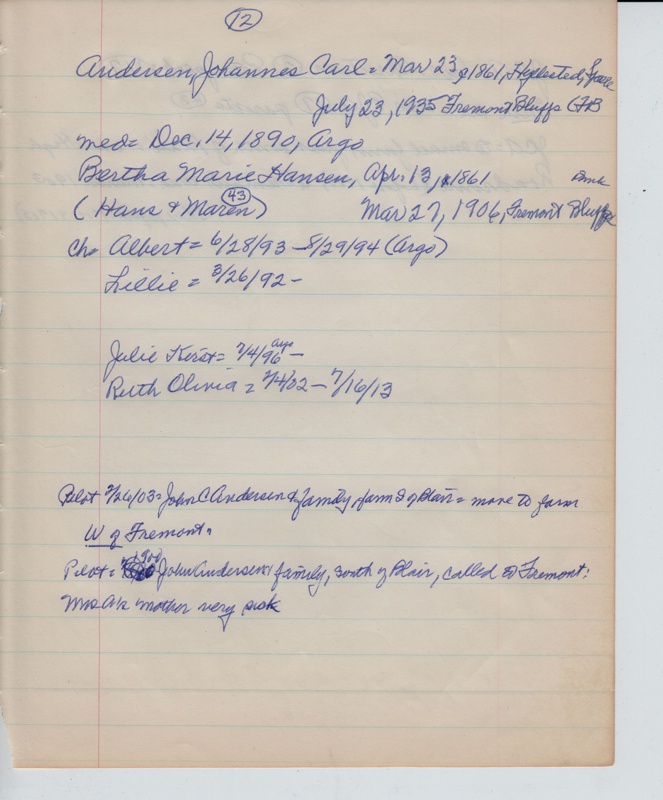 12
Andersen, Johannes Carl = Mar 23, 1861, Hyllested,
July 23, 1935 Fremont Bluffs (FHB
med= Dec. 14, 1890, Argo
Bertha Marie Hansen, Apr. 13, 1861 Dmk
(Hans & Maren) 43 Mar 27, 1906, Fremont Bluffs
Ch= Albert = 6/28/93 - 8/29/94 (Argo)
Lillie = 3/26/92 -
Julie Kirst = 7/4/96 -
Ruth Olivia = 2/4/02 - 7/16/13
Pilot 2/26/03 = John C Andersen & family, farm S of Blair = move to farm
W of Fremont.
Pilot = 1900 John Andersen & family, south of Blair, called to Fremont:
Mrs A's mother very sick